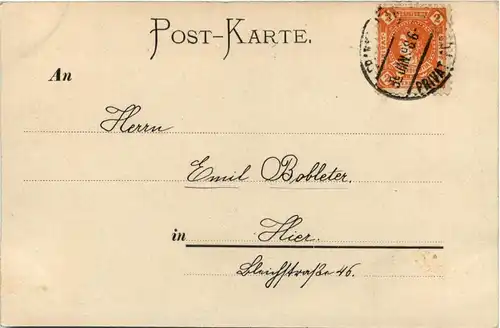 POST-KARTE.
An
Herrn
Emil Bobleter.
in Hier.
Bleichstraße 46.
PRIVAT